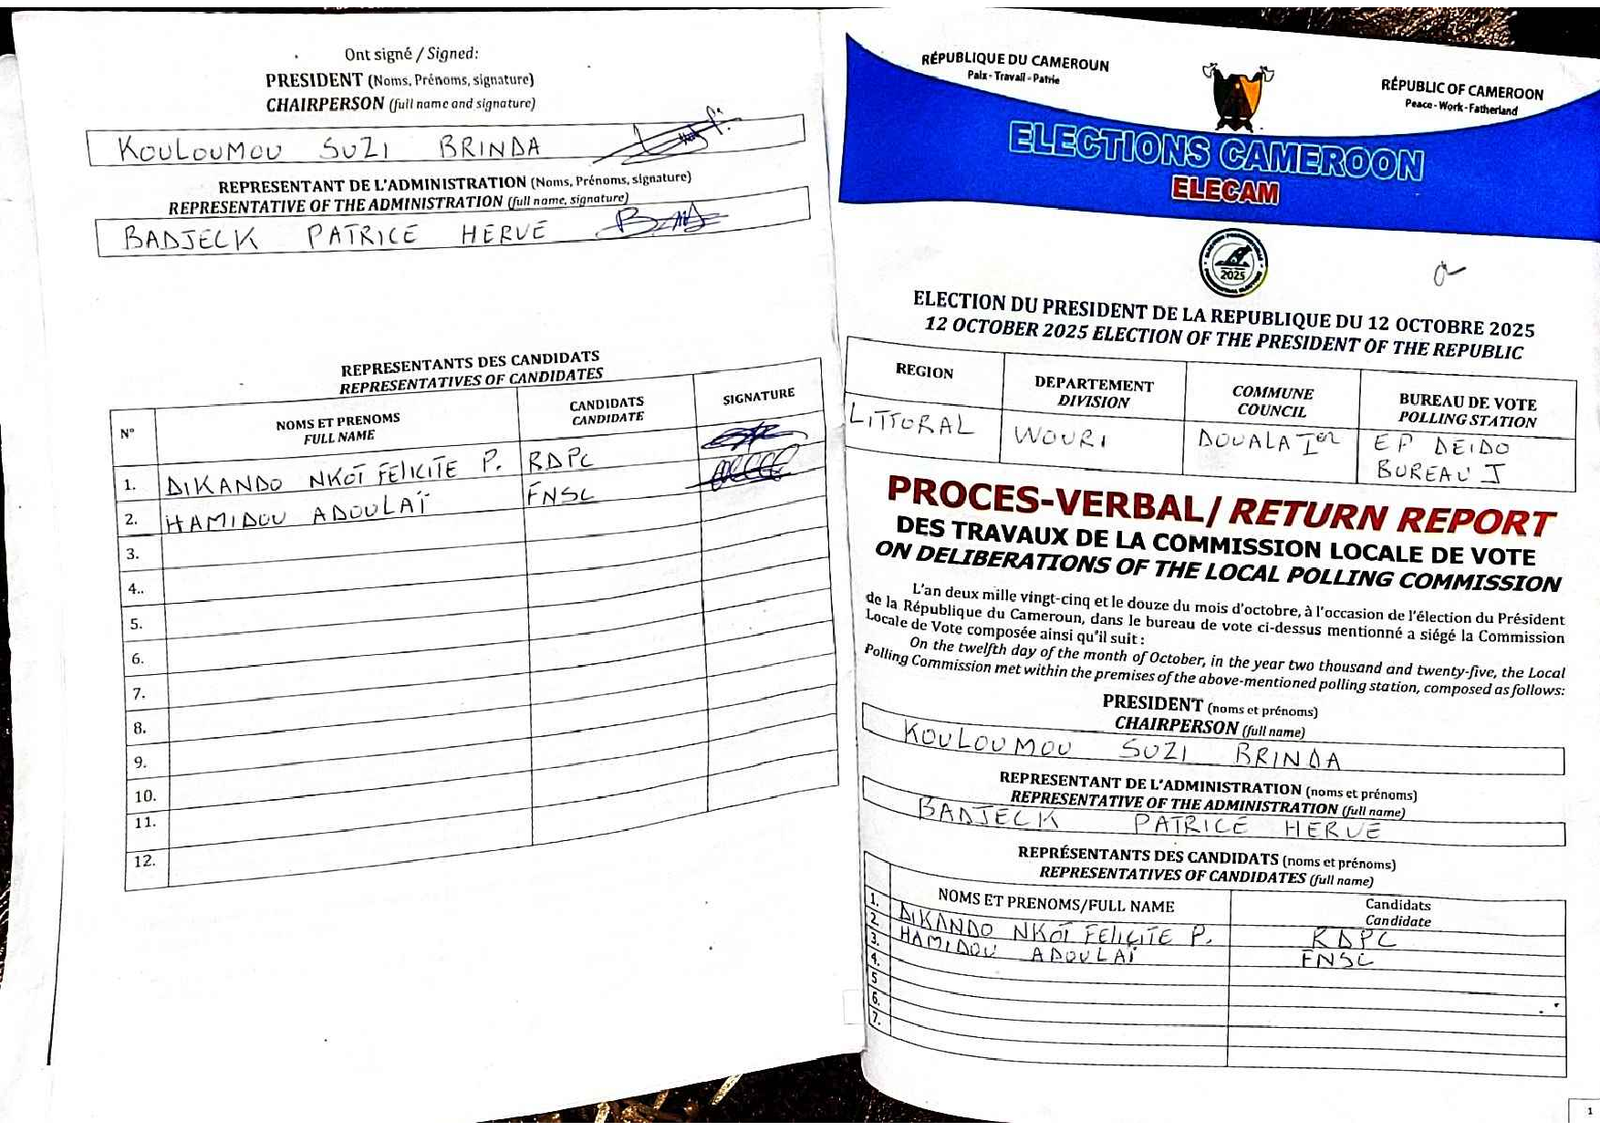 Ont signé / Signed:
PRESIDENT (Noms, Prénoms, signature)
CHAIRPERSON (full name and signature)
KOULOUMOU SUZI BRINDA
REPRESENTANT DE L'ADMINISTRATION (Noms, Prénoms, signature)
REPRESENTATIVE OF THE ADMINISTRATION (full name, signature)
BADJECK PATRICE HERVE
REPRESENTANTS DES CANDIDATS
REPRESENTATIVES OF CANDIDATES
N° NOMS ET PRENOMS FULL NAME CANDIDATS CANDIDATE SIGNATURE
1. DIKANDO NKOT FELICITE P. RDPC
2. HAMIDOU ADOULAÏ FNSC
3.
4..
5.
6.
7.
8.
9.
10.
11.
12.
RÉPUBLIQUE DU CAMEROUN
Paix - Travail - Patrie
RÉPUBLIC OF CAMEROON
Peace - Work - Fatherland
ELECTIONS CAMEROON
ELECAM
2025
ELECTION DU PRESIDENT DE LA REPUBLIQUE DU 12 OCTOBRE 2025
12 OCTOBER 2025 ELECTION OF THE PRESIDENT OF THE REPUBLIC
REGION DEPARTEMENT DIVISION COMMUNE COUNCIL BUREAU DE VOTE POLLING STATION
LITTORAL WOURI DOUALA Ier EP DEIDO BUREAU I
PROCES-VERBAL/ RETURN REPORT
DES TRAVAUX DE LA COMMISSION LOCALE DE VOTE
ON DELIBERATIONS OF THE LOCAL POLLING COMMISSION
L'an deux mille vingt-cinq et le douze du mois d'octobre, à l'occasion de l'élection du Président
de la République du Cameroun, dans le bureau de vote ci-dessus mentionné a siégé la Commission
Locale de Vote composée ainsi qu'il suit :
On the twelfth day of the month of October, in the year two thousand and twenty-five, the Local
Polling Commission met within the premises of the above-mentioned polling station, composed as follows:
PRESIDENT (noms et prénoms)
CHAIRPERSON (full name)
KOULOUMOU SUZI BRINDA
REPRESENTANT DE L'ADMINISTRATION (noms et prénoms)
REPRESENTATIVE OF THE ADMINISTRATION (full name)
BADJECK PATRICE HERVE
REPRÉSENTANTS DES CANDIDATS (noms et prénoms)
REPRESENTATIVES OF CANDIDATES (full name)
NOMS ET PRENOMS/FULL NAME Candidats Candidate
1.
2. DIKANDO NKOT FELICITE P. RDPC
3. HAMIDOU ADOULAÏ FNSC
4.
5
6.
7.
1